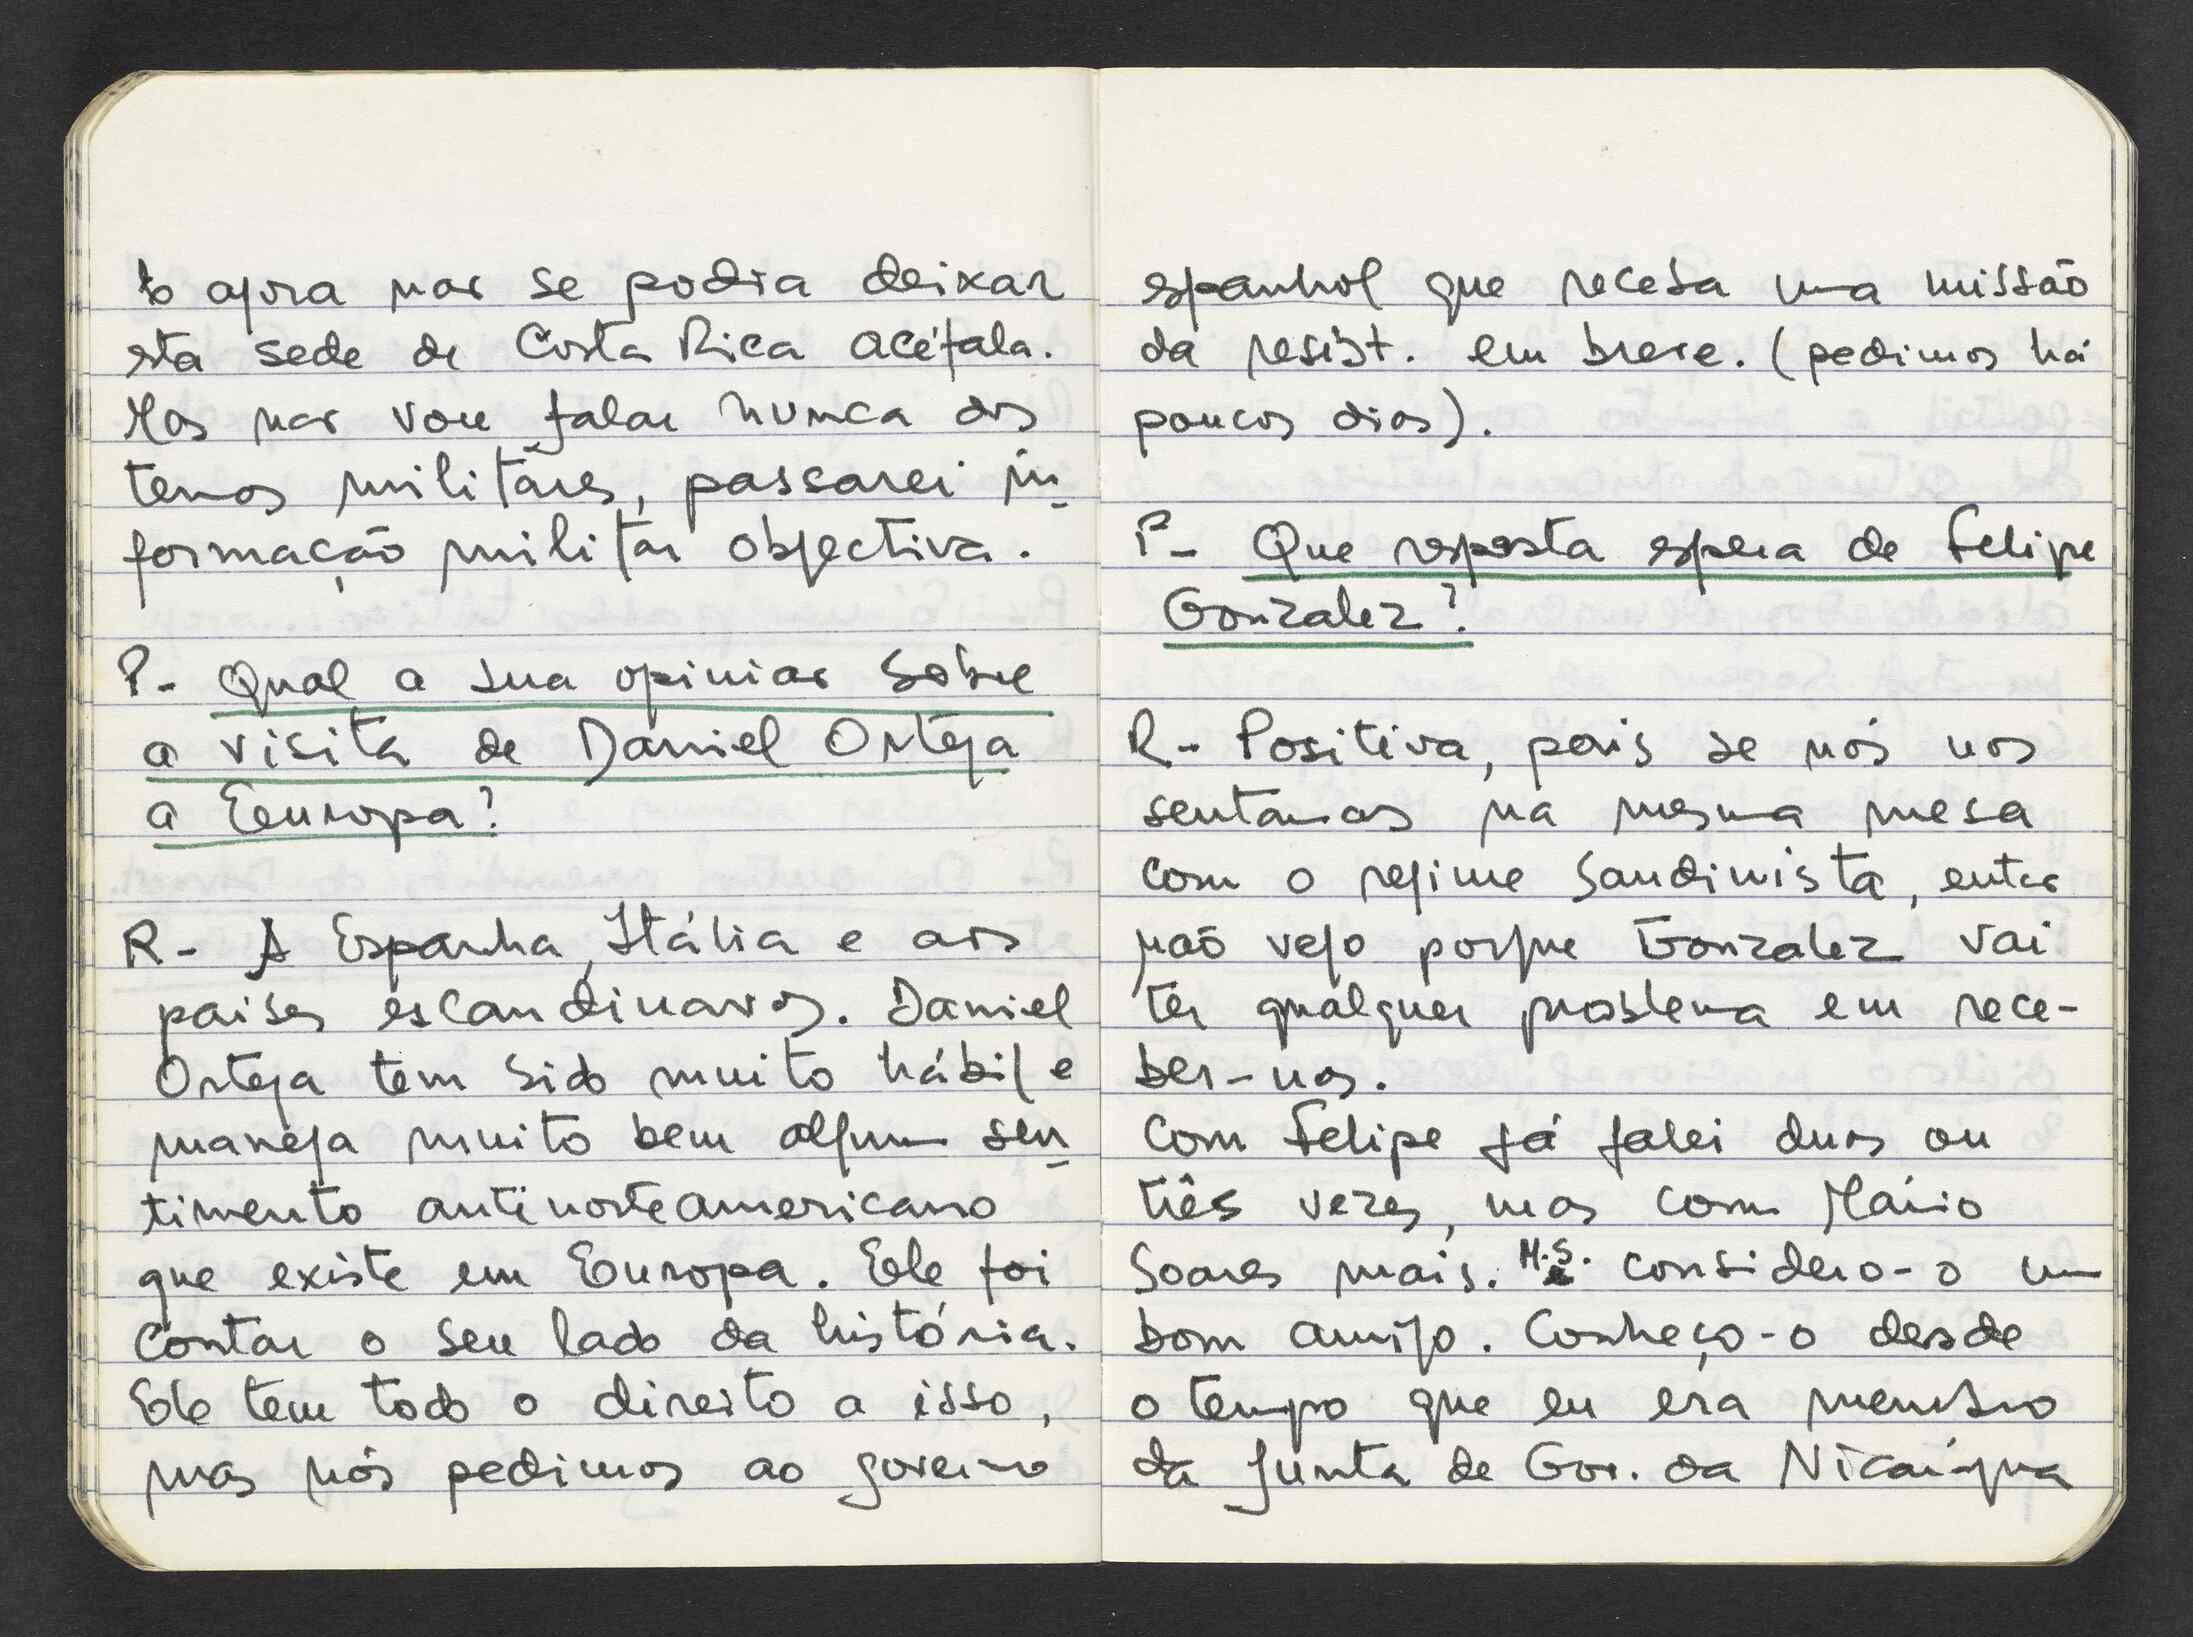 to agora não se podia deixar
esta sede de Costa Rica acéfala.
Mas não vou falar nunca dos
temas militares, passarei in-
formação militar objectiva.
P- Qual a sua opinião sobre
a visita de Daniel Ortega
a Europa?
R- A Espanha, Itália e aos
paises escandinavos. Daniel
Ortega tem sido muito hábil e
maneja muito bem algum sen-
timento antinorteamericano
que existe em Europa. Ele foi
contar o seu lado da história.
Ele tem todo o direito a isso,
mas nós pedimos ao governo
espanhol que receba uma missão
da resist. em breve. (pedimos há
poucos dias).
P- Que resposta espera de Felipe
Gonzalez?
R- Positiva, pois se nós nos
sentamos na mesma mesa
com o regime Sandinista, então
não vejo porque Gonzalez vai
ter qualquer problema em rece-
ber-nos.
Com Felipe já falei duas ou
três vezes, mas com Mário
Soares mais. M.S. considero-o um
bom amigo. Conheço-o desde
o tempo que eu era membro
da Junta de Gov. da Nicarágua